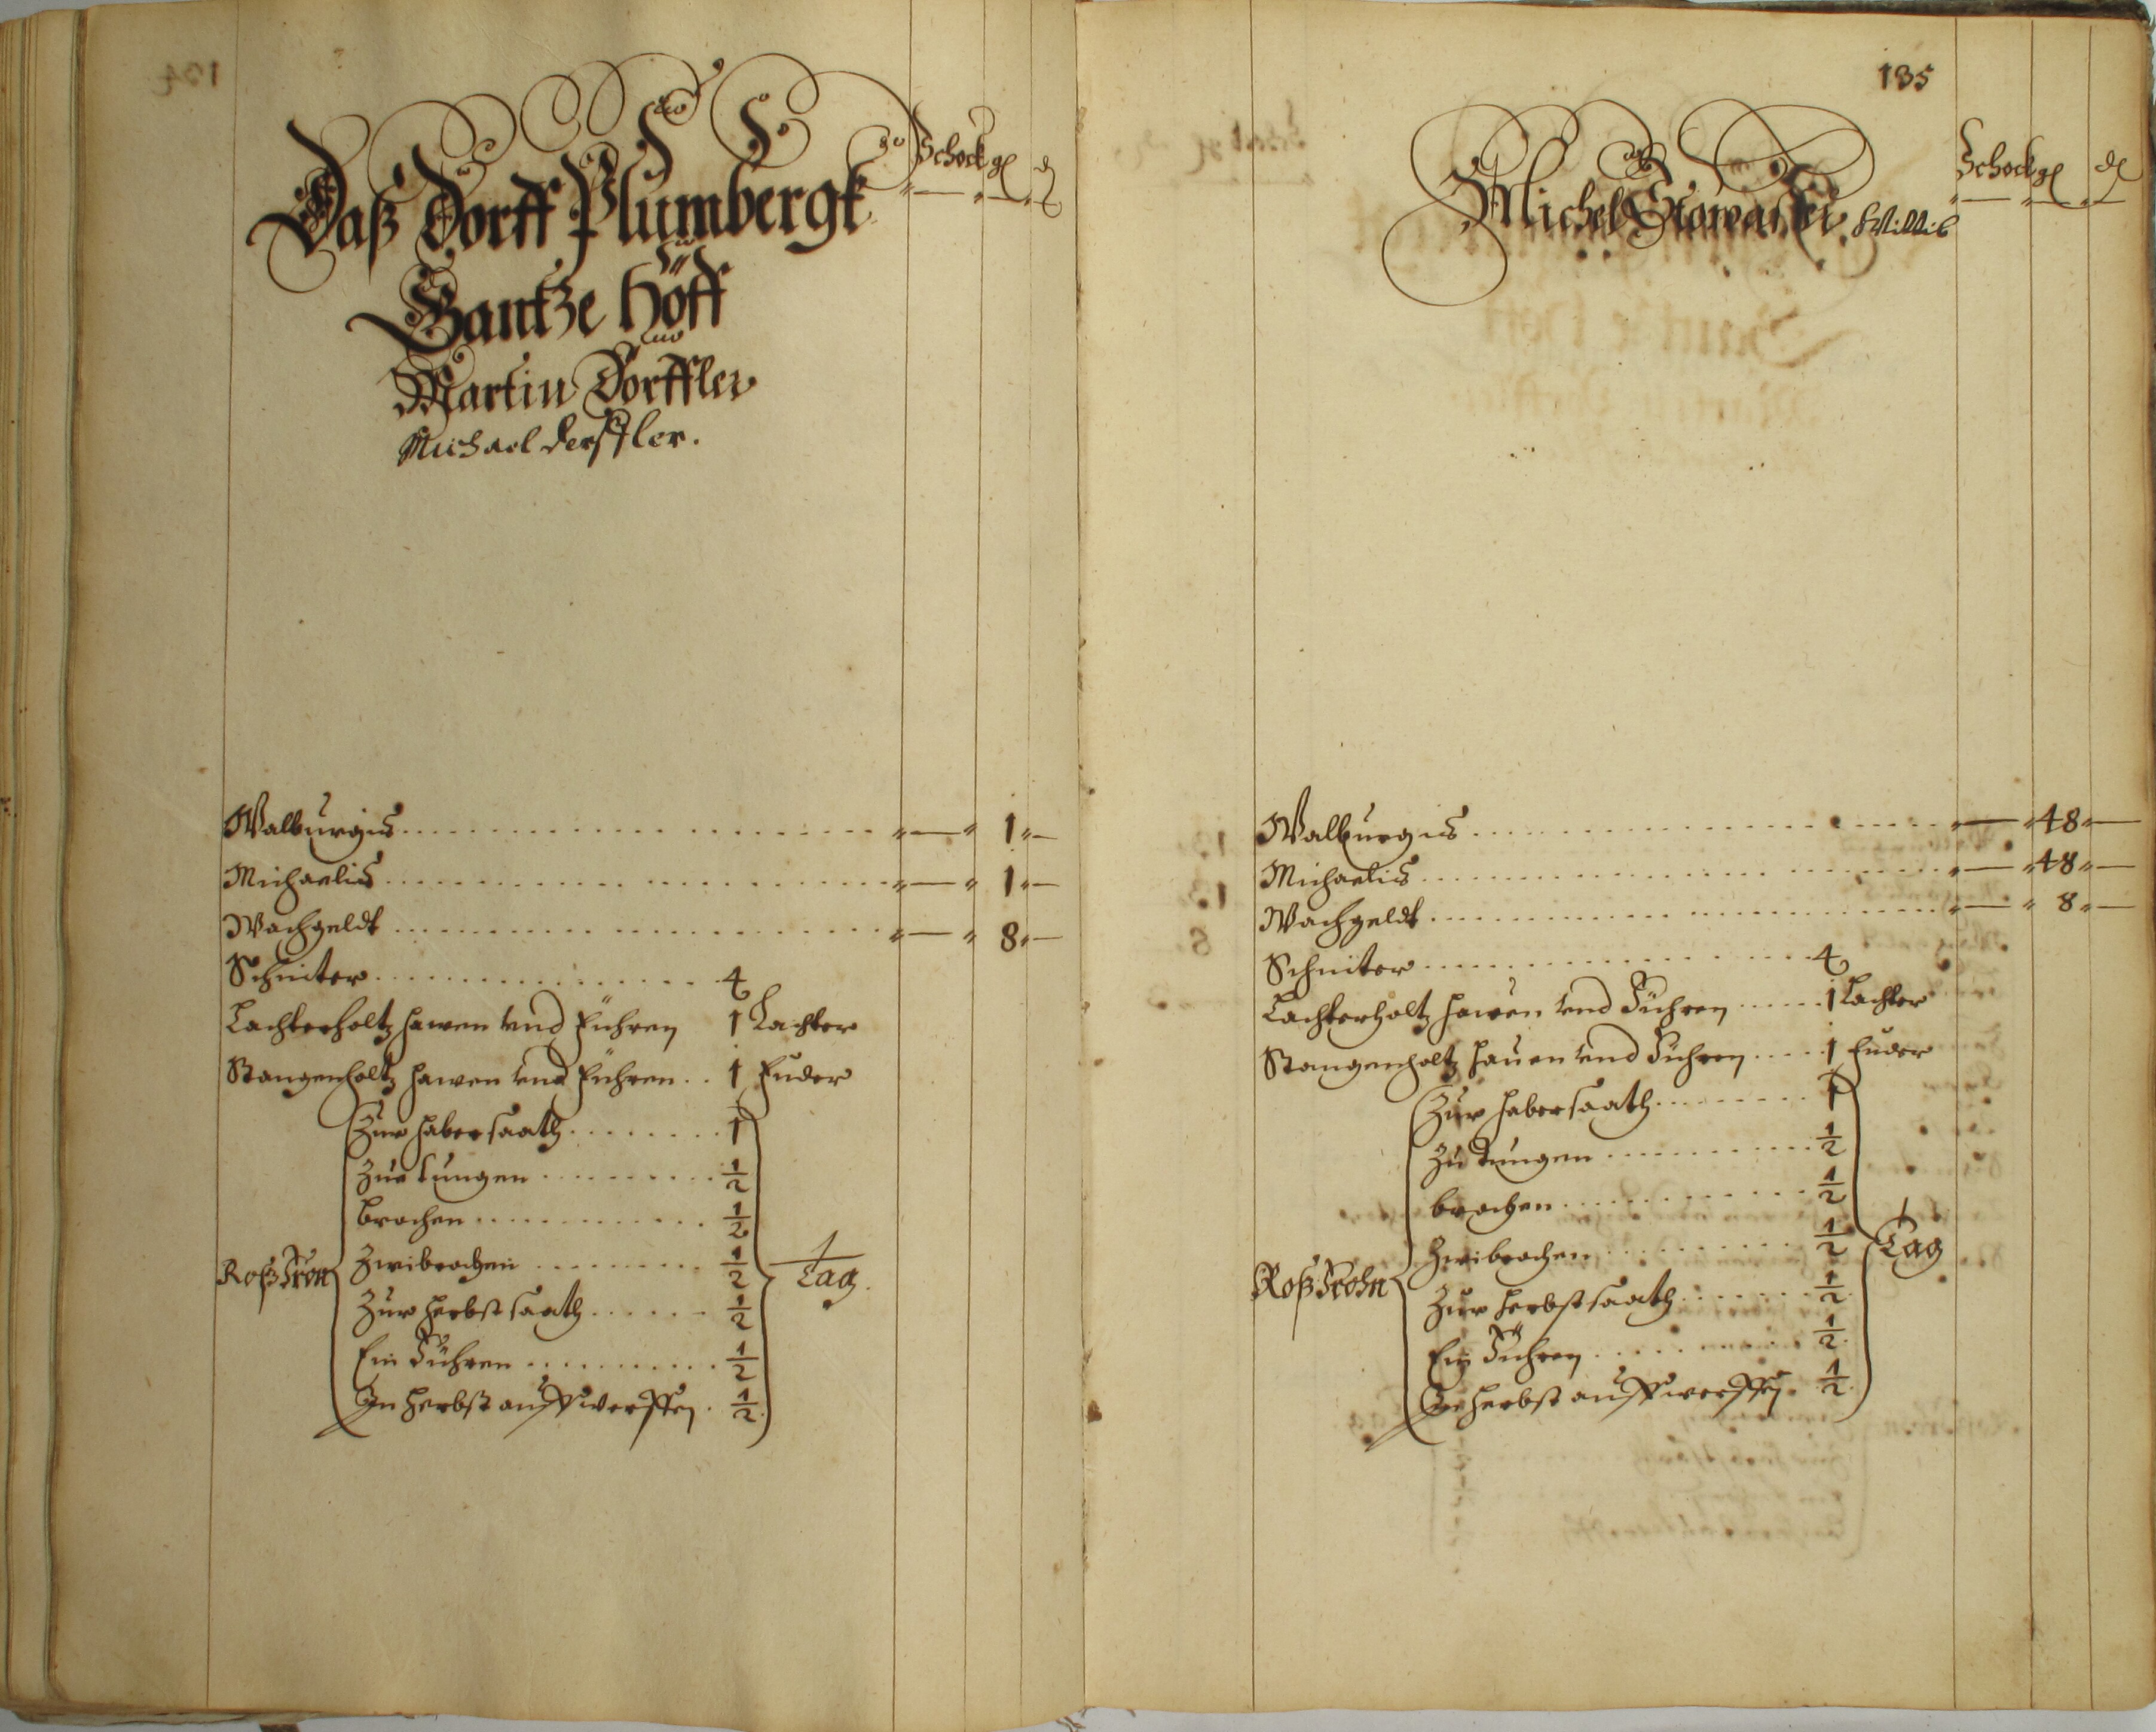 Daß Dorff Plumbergk
Schock gl ₰
Gantze Höff
Martin Dörffler
Michael Derffler.
Walburgis - 1 -
Michaelis - 1 -
Wachgeldt - 8 -
Schniter 4
Lachterholtz hawen vnd Führen 1 Lachter
Stangenholtz hawen vnd Führen 1 Fuder
Roß Fron
Zur habersaath 1
Zur tungen ½
brachen ½
Zwibrachen ½
Zur herbst saath ½
Ein Führen ½
In herbst auffwerffen ½
Tag
135
Michel Wittib
Schock gl ₰
Walburgis - 48 -
Michaelis - 48 -
Wachgeldt - 8 -
Schniter 4
Lachterholtz hawen vnd Führen 1 Lachter
Stangenholtz hauen vnd Führen 1 Fuder
Roß Frohn
Zur habersaath 1
Zu tungen ½
brachen ½
Zwibrachen ½
Zur herbst saath ½
Ein Führen ½
In herbst auffwerffen ½
Tag